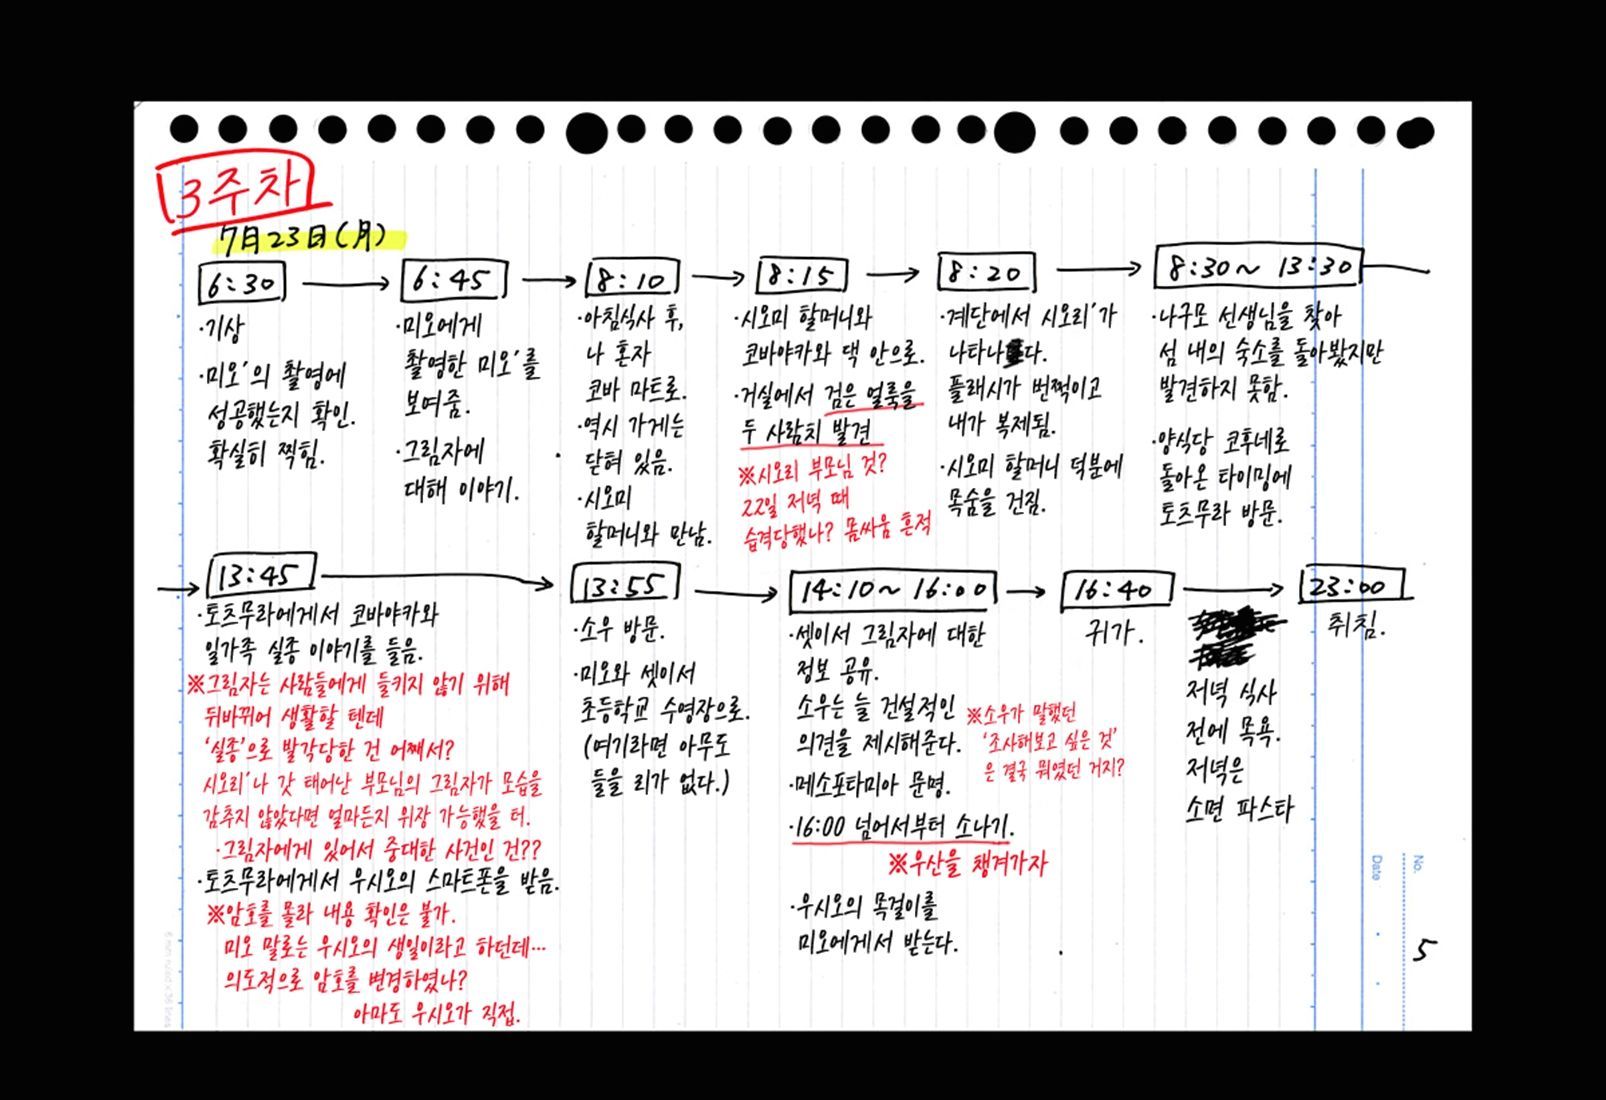 3주차
7月23日(月)
6:30
·기상
·미오'의 촬영에
성공했는지 확인.
확실히 찍힘.
6:45
·미오에게
촬영한 미오'를
보여줌.
·그림자에
대해 이야기.
8:10
·아침식사 후,
나 혼자
코바 마트로.
·역시 가게는
닫혀 있음.
·시오미
할머니와 만남.
8:15
·시오미 할머니와
코바야카와 댁 안으로.
·거실에서 검은 얼룩을
두 사람치 발견
※시오리 부모님 것?
22일 저녁 때
습격당했나? 몸싸움 흔적
8:20
·계단에서 시오리'가
나타나다.
플래시가 번쩍이고
내가 복제됨.
·시오미 할머니 덕분에
목숨을 건짐.
8:30~ 13:30
·나구모 선생님을 찾아
섬 내의 숙소를 돌아봤지만
발견하지 못함.
·양식당 코후네로
돌아온 타이밍에
토츠무라 방문.
13:45
·토츠무라에게서 코바야카와
일가족 실종 이야기를 들음.
※그림자는 사람들에게 들키지 않기 위해
뒤바뀌어 생활할 텐데
'실종'으로 발각당한 건 어째서?
시오리'나 갓 태어난 부모님의 그림자가 모습을
감추지 않았다면 얼마든지 위장 가능했을 터.
·그림자에게 있어서 중대한 사건인 건??
·토츠무라에게서 우시오의 스마트폰을 받음.
※암호를 몰라 내용 확인은 불가.
미오 말로는 우시오의 생일이라고 하던데…
의도적으로 암호를 변경하였나?
아마도 우시오가 직접.
13:55
·소우 방문.
·미오와 셋이서
초등학교 수영장으로.
(여기라면 아무도
들을 리가 없다.)
14:10~ 16:00
·셋이서 그림자에 대한
정보 공유.
소우는 늘 건설적인
의견을 제시해준다.
※소우가 말했던
'조사해보고 싶은 것'
은 결국 뭐였던 거지?
·메소포타미아 문명.
·16:00 넘어서부터 소나기.
※우산을 챙겨가자
·우시오의 목걸이를
미오에게서 받는다.
16:40
귀가.
저녁 식사
전에 목욕.
저녁은
소면 파스타
23:00
취침.
No.
Date
5